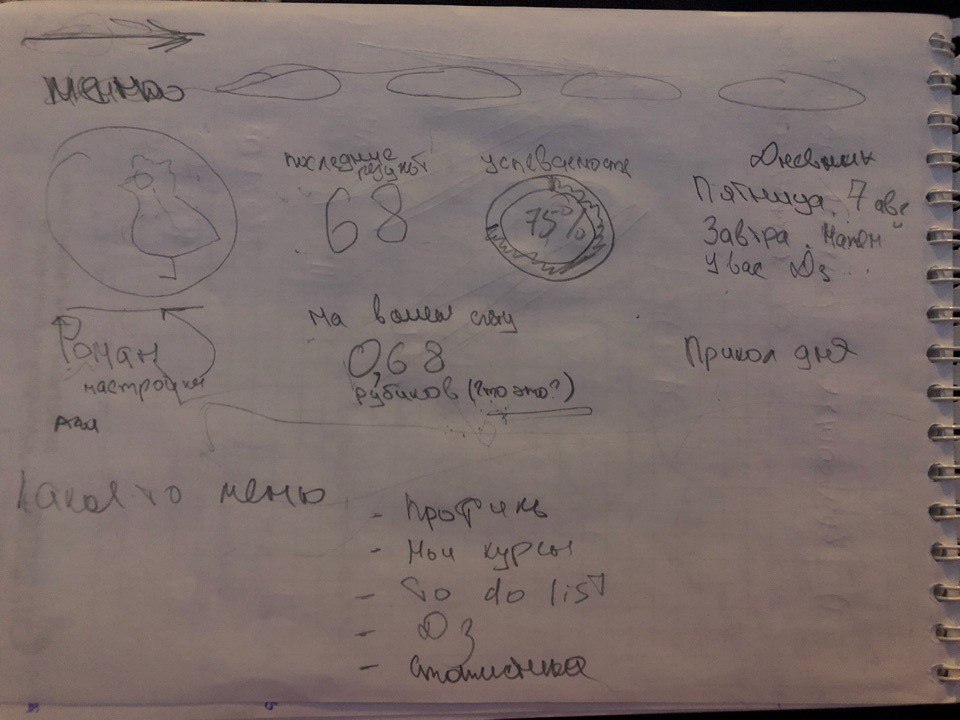 меню
последние
результ
68
успеваемость
75%
Дневник
Пятница. 7 авг
Завтра. Матем
У вас Дз...
Роман
настройки
на вашем счету
0,68
рубиков (что это?)
Прикол дня
Какое то меню
- Профиль
- Мои курсы
- To do list
- Дз
- Статистика